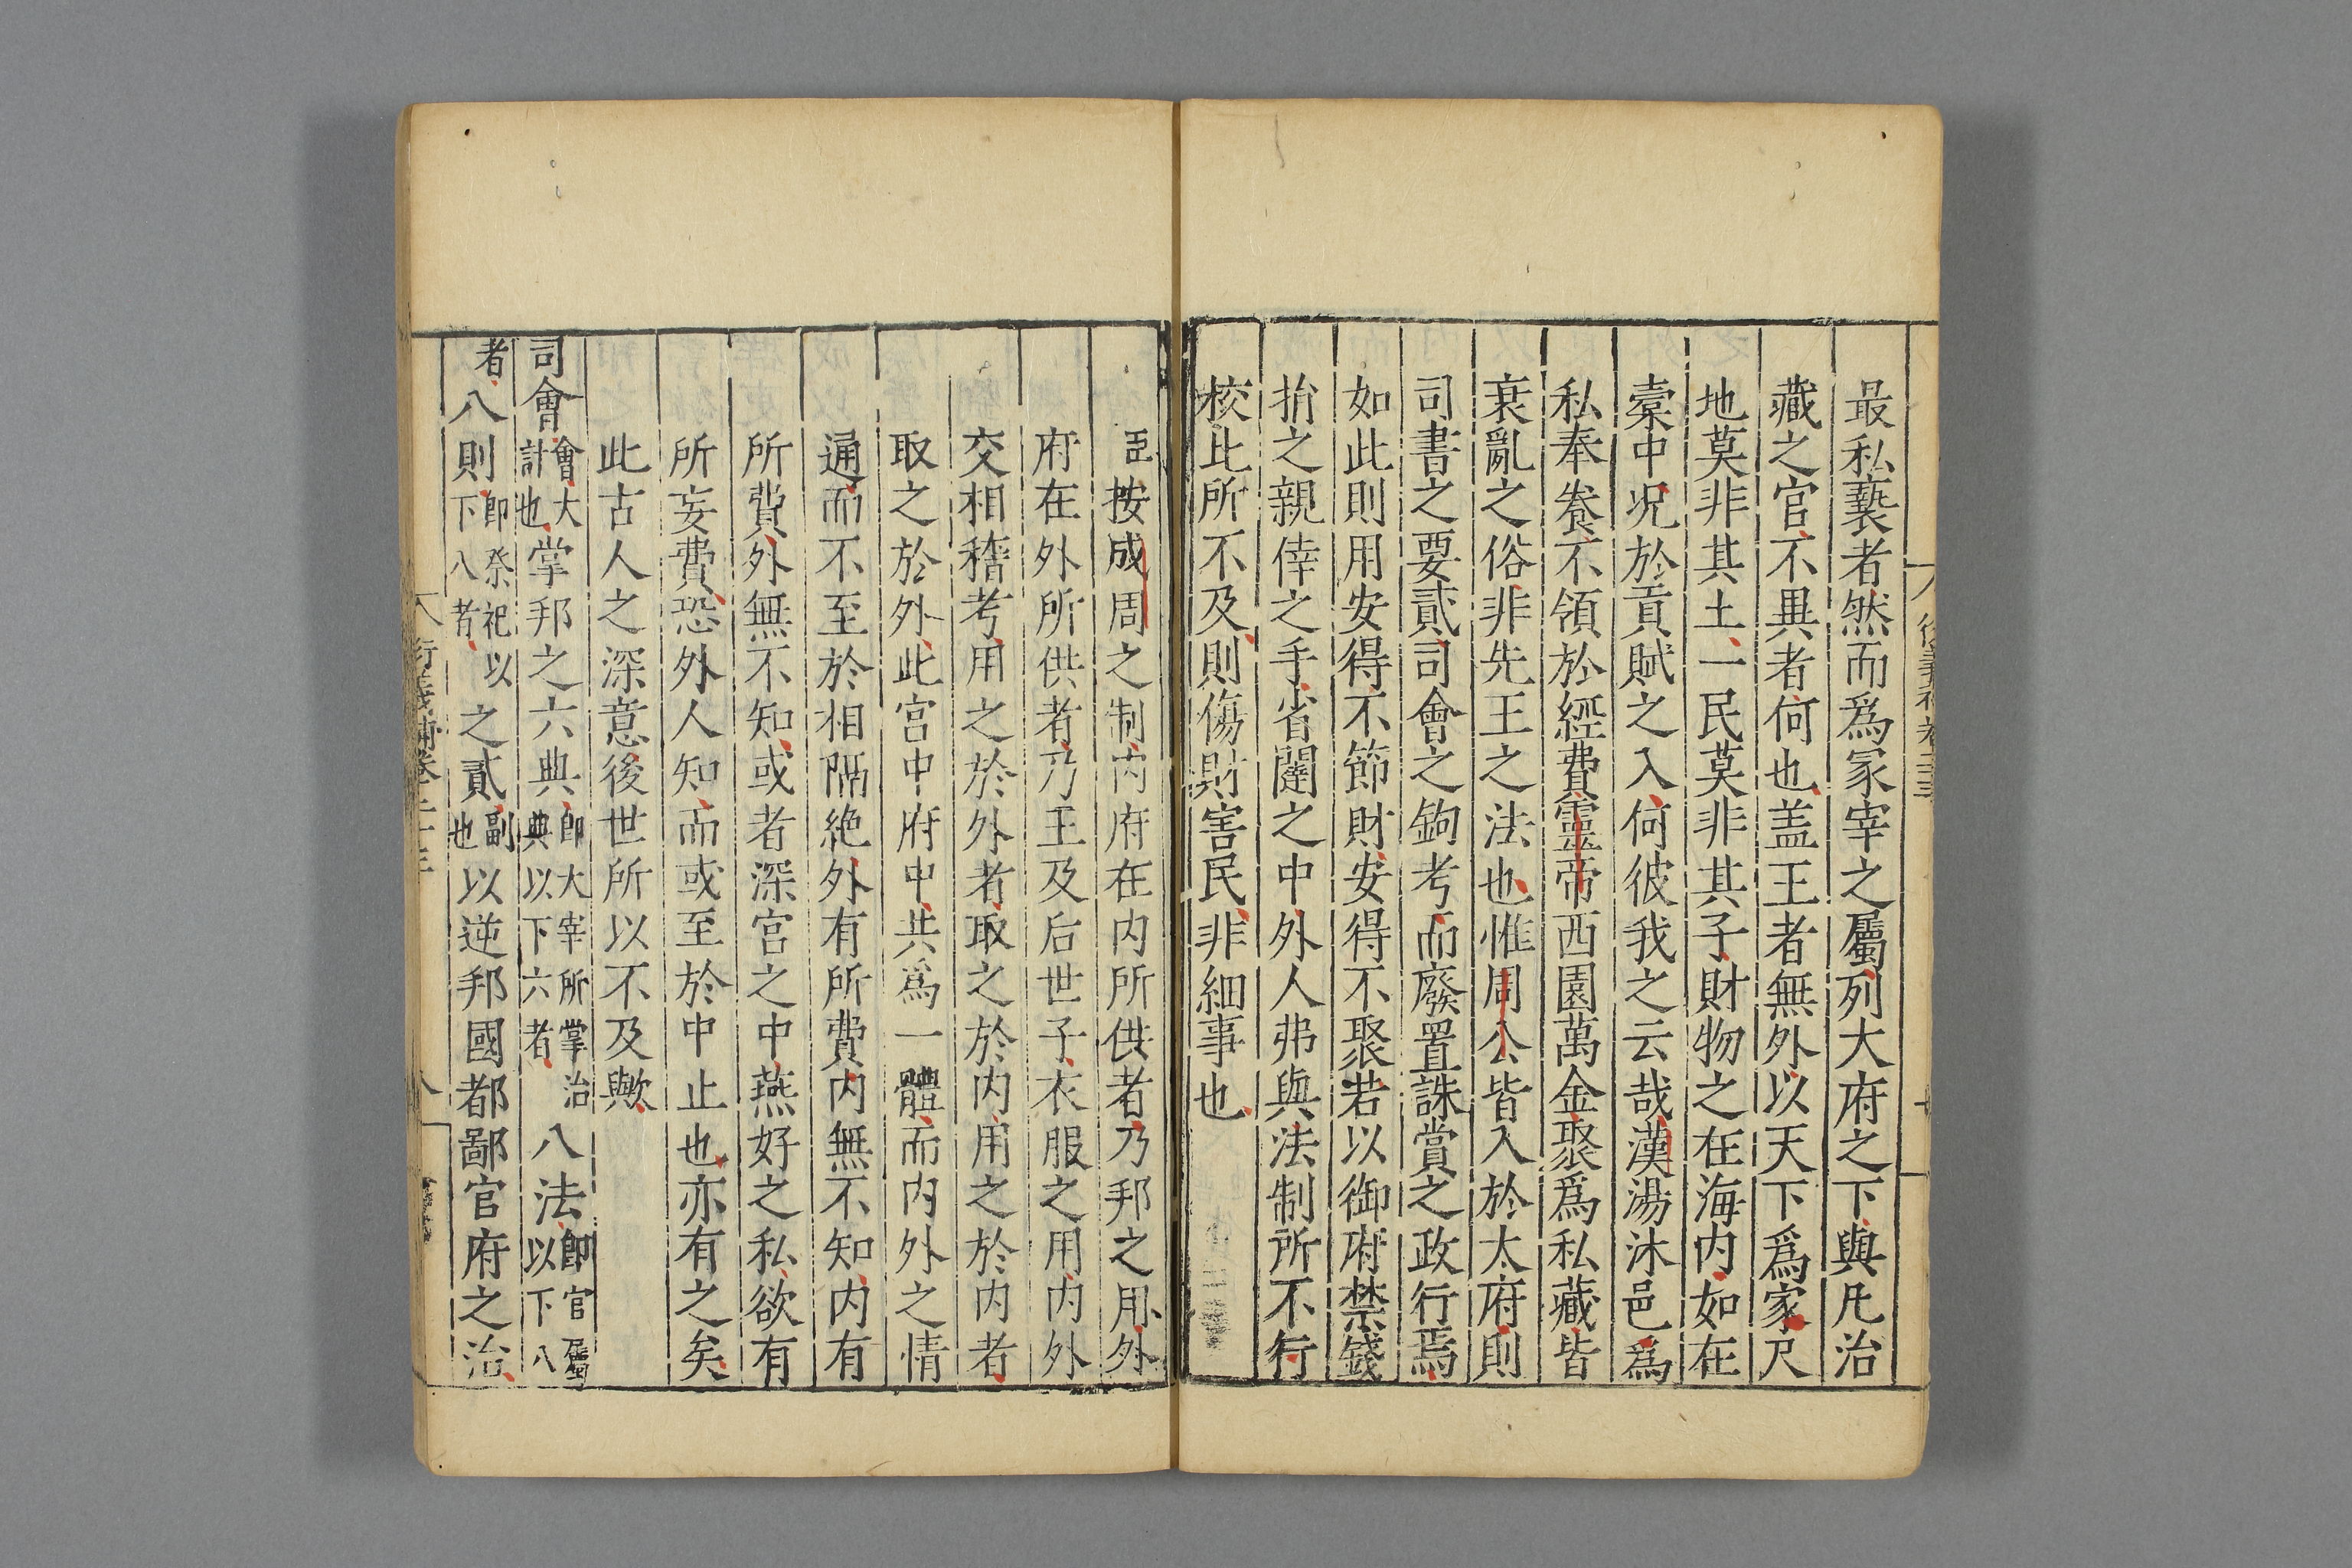 最私褻者然而爲冢宰之屬列大府之下與凡治
藏之官不異者何也盖王者無外以天下爲家尺
地莫非其土一民莫非其子財物之在海内如在
槖中况於貢賦之入何彼我之云哉漢湯沐邑爲
私奉養不領於經費靈帝西園萬金聚爲私藏皆
衰亂之俗非先王之法也惟周公皆入於太府則
司書之要貳司會之鉤考而廢置誅賞之政行焉
如此則用安得不節財安得不聚若以御府禁錢
捐之親倖之手省闥之中外人弗與法制所不行
校此所不及則傷財害民非細事也
臣按成周之制内府在内所供者乃邦之用外
府在外所供者乃王及后世子衣服之用内外
交相稽考用之於外者取之於内用之於内者
取之於外此宮中府中共爲一體而内外之情
通而不至於相隔絶外有所費内無不知内有
所費外無不知或者深宮之中燕好之私欲有
所妄費恐外人知而或至於中止也亦有之矣
此古人之深意後世所以不及歟
司會會大計也掌邦之六典即大宰所掌治典以下六者八法即官屬以下八
者八則即祭祀以下八者之貳副也以逆邦國都鄙官府之治